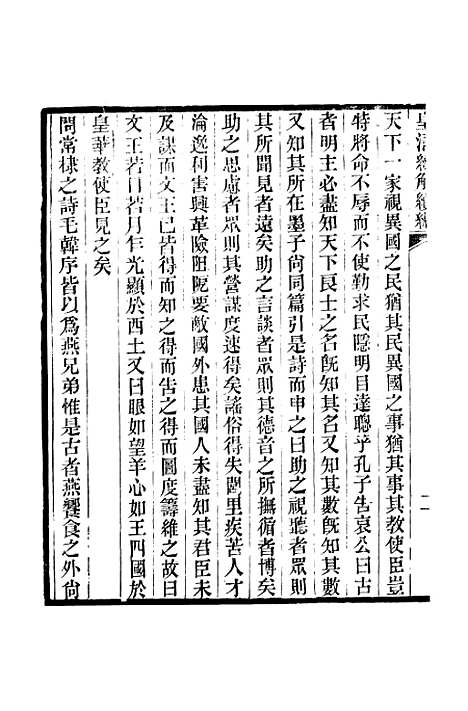 皇清經解續編
天下一家視異國之民猶其民異國之事猶其事其教使臣豈
特將命不辱而不使勤求民隱明目達聰乎孔子告哀公曰古
者明主必盡知天下良士之名旣知其名又知其數旣知其數
又知其所在墨子尙同篇引是詩而申之曰助之視聽者眾則
其所聞見者遠矣助之言談者眾則其德音之所撫循者博矣
助之思慮者眾則其營謀度速得矣謠俗得失閭里疾苦人才
淪逸利害興革險阻阨要敵國外患其國人未盡知其君臣未
及謀而文王已皆得而知之得而告之得而圖度籌維之故曰
文王若日若月乍光顯於西土又曰眼如望羊心如王四國於
皇華教使臣見之矣
問常棣之詩毛韓序皆以爲燕兄弟惟是古者燕饗食之外尙